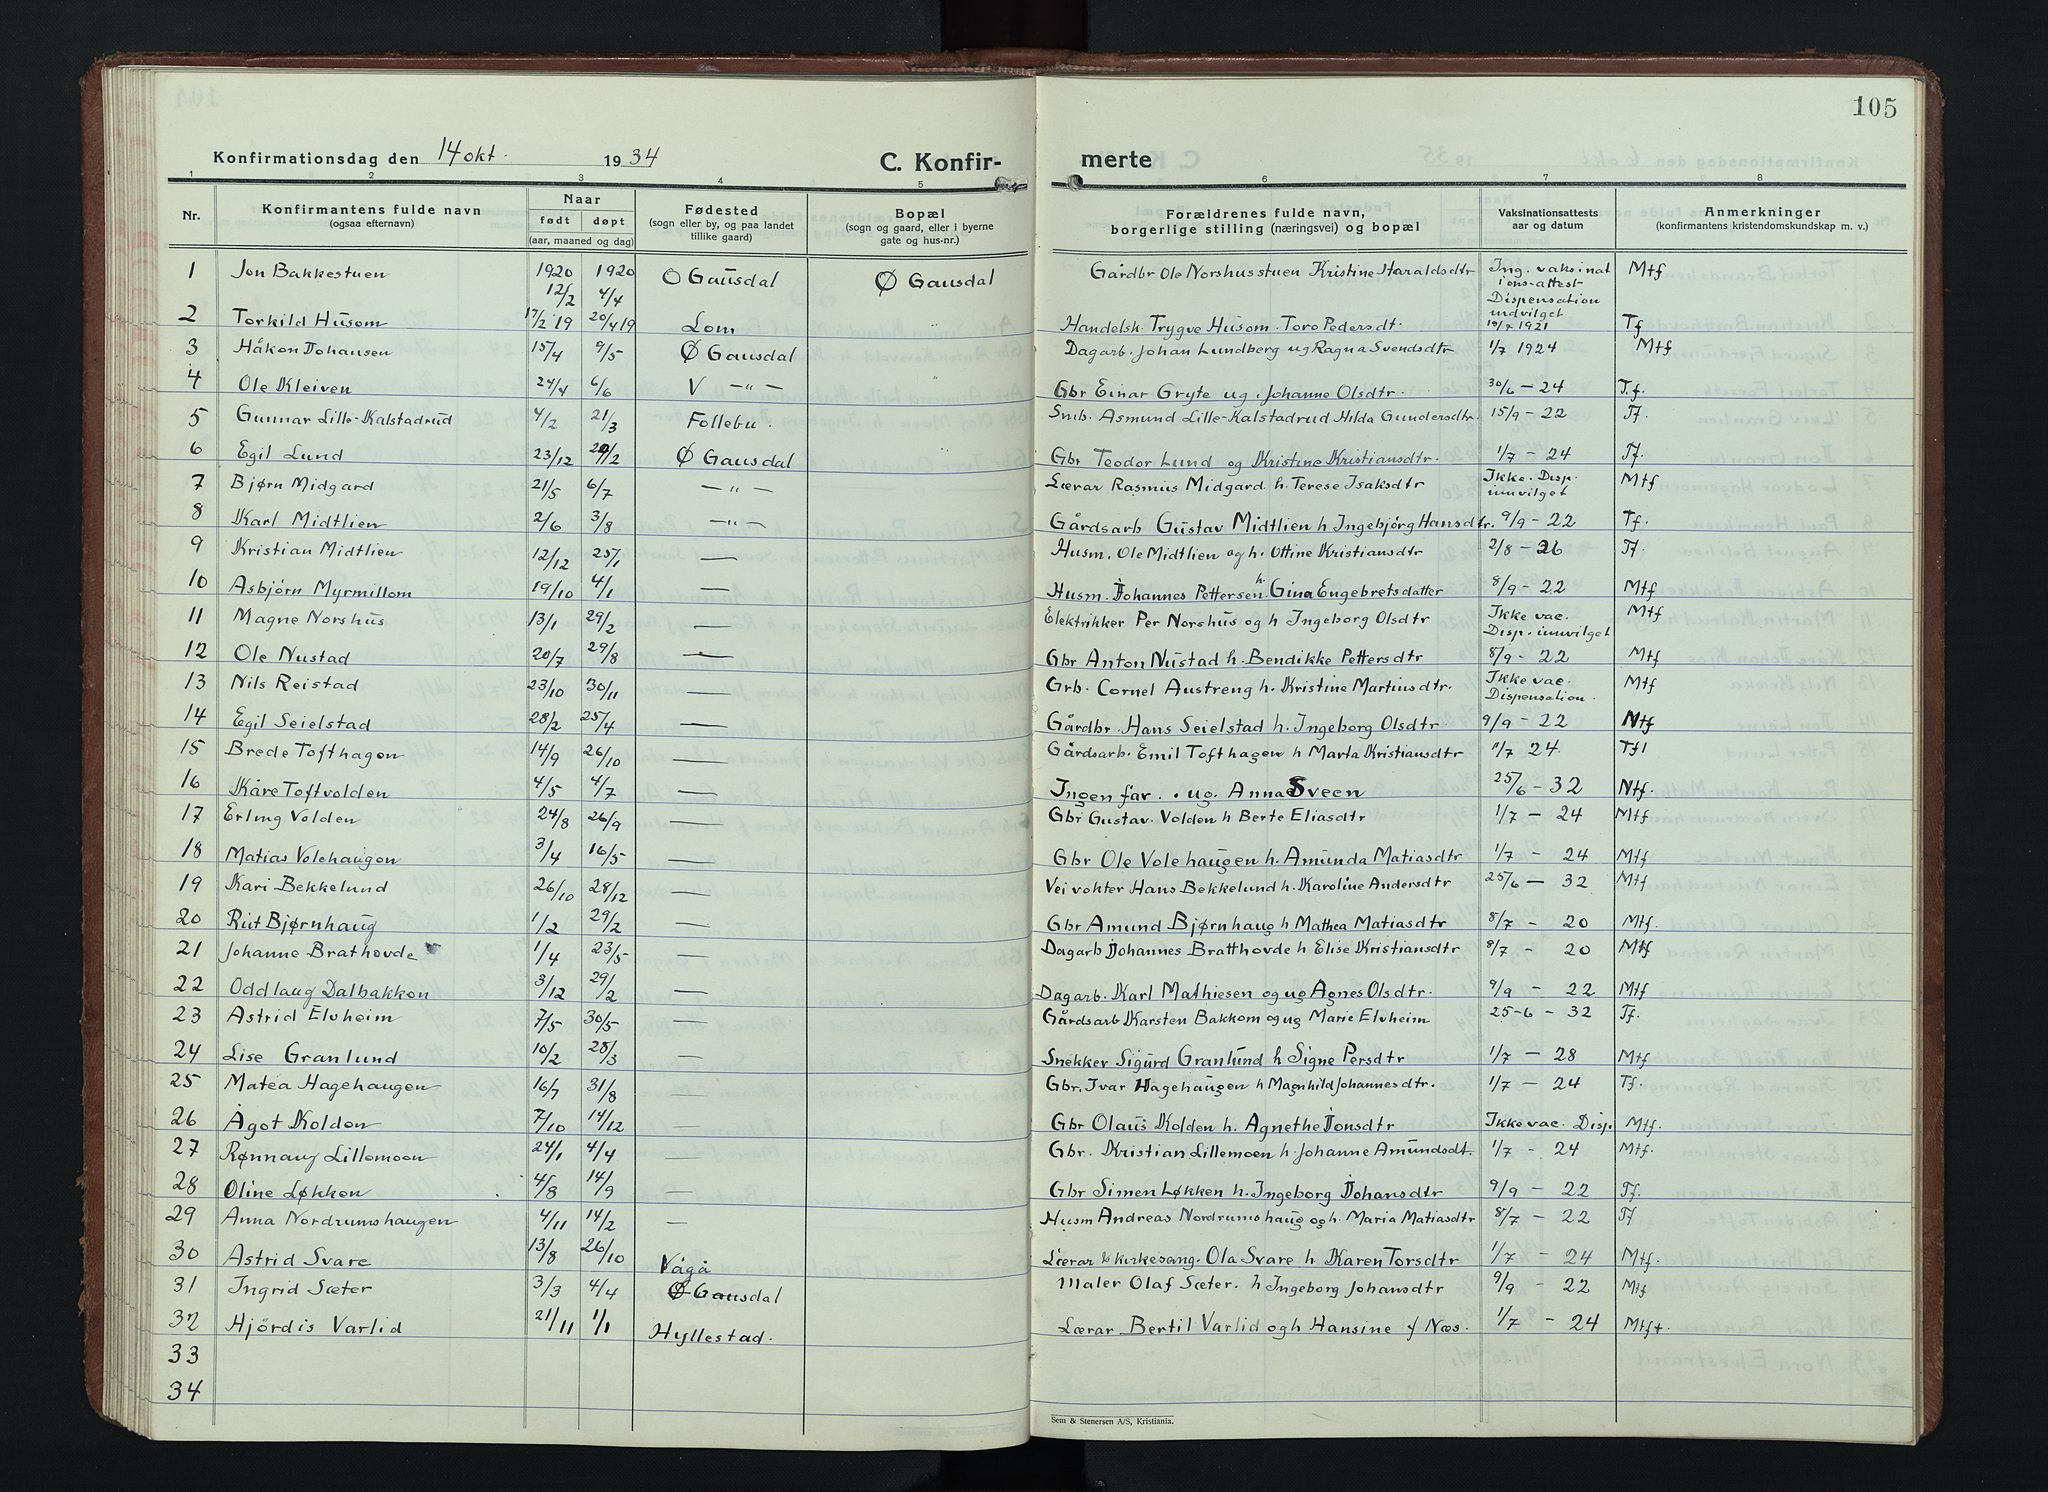 105
Konfirmationsdag den 14 okt. 1934 C. Konfir- merte
1 2 3 4 5 6 7 8
Nr. Konfirmantens fulde navn (ogsaa efternavn) Naar født døpt (aar, maaned og dag) Fødested (sogn eller by, og paa landet tillike gaard) Bopæl (sogn og gaard, eller i byerne gate og hus-nr.) Forældrenes fulde navn, borgerlige stilling (næringsvei) og bopæl Vaksinationsattests aar og datum Anmerkninger (konfirmantens kristendomskundskap m. v.)
1 Jon Bakkestuen 1920 12/2 1920 4/4 O Gausdal Ø Gausdal Gårdbr Ole Norshusstuen Kristine Haraldsdtr Ing. vaksinat ions-attest Dispensation indvilget Mtf
2 Torkild Husom 17/2 19 20/4 19 Lom " Handelsk. Trygve Husom. Toro Pedersdt. 19/7 1921 Tf
3 Håkon Johansen 15/4 9/5 Ø Gausdal Dagarb. Johan Lundberg ug Ragna Svendsdtr 1/7 1924 Mtf
4 Ole Kleiven 24/4 6/6 V —"— " Gbr Einar Gryte ug. Johanne Olsdtr. 30/6 — 24 T.f.
5 Gunnar Lille-Kalstadrud 4/2 21/3 Follebu. Smb. Asmund Lille-Kalstadrud Hilda Gundersdtr. 15/9 — 22 Tf.
6 Egil Lund 23/12 29/2 Ø Gausdal Gbr Teodor Lund og Kristine Kristiansdtr. 1/7 — 24 Tf.
7 Bjørn Midgard 21/5 6/7 —"— Lærar Rasmus Midgard h. Terese Isaksdtr Ikke. Disp. innvilget Mtf
8 Karl Midtlien 2/6 3/8 —"— Gårdsarb Gustav Midtlien h Ingebjörg Hansdtr. 9/9 — 22 Tf.
9 Kristian Midtlien 12/12 25/1 — Husm. Ole Midtlien og h. Ottine Kristiansdtr 2/8 — 26 Tf.
10 Asbjörn Myrmillom 19/10 4/1 — Husm. Johannes Pettersen h. Gina Engebretsdatter 8/9 — 22 Mtf
11 Magne Norshus 13/1 29/2 — Elektrikker Per Norshus og h Ingeborg Olsdtr Ikke vac. Disp. innvilget Mtf
12 Ole Nustad 20/7 29/8 — Gbr Anton Nustad h. Bendikke Pettersdtr 8/9 — 22 Mtf
13 Nils Reistad 23/10 30/11 — Grb. Cornel Austreng h. Kristine Martinsdtr. Ikke vac. Dispensation. Mtf
14 Egil Seielstad 28/2 25/4 — Gårdbr. Hans Seielstad h. Ingeborg Olsdtr 9/9 — 22 Ntf
15 Brede Tofthagen 14/9 26/10 — Gårdsarb. Emil Tofthagen h Marta Kristiansdtr 1/7 24. Tf
16 Kåre Toftvolden 4/5 4/7 — Ingen far. . ug. Anna Sveen 25/6 — 32 Ntf.
17 Erling Volden 24/8 26/9 — Gbr Gustav. Volden h Berte Eliasdtr 1/7 — 24 Mtf
18 Matias Volehaugen 3/4 16/5 — Gbr Ole Volehaugen h. Amunda Matiasdtr 1/7 — 24 Mtf
19 Kari Bekkelund 26/10 28/12 — Vei vokter Hans Bekkelund h. Karoline Andersdtr 25/6 — 32 Mtf
20 Rut Bjørnhaug 1/2 29/2 — Gbr Amund Bjørnhaug h Mathea Matiasdtr 8/7 — 20 Mtf.
21 Johanne Brathovde 1/4 23/5 — Dagarb Johannes Bratthovde h Elise Kristiansdtr 8/7 — 20 Mtf
22 Oddlaug Dalbakken 3/12 29/2 — Dagarb. Karl Mathiesen og ug Agnes Olsdtr. 9/9 — 22 Mtf
23 Astrid Elvheim 7/5 30/5 — Gårdsarb Karsten Bakkom og ug Marie Elvheim 25-6 — 32 Tf.
24 Lise Granlund 10/2 28/3 — Snekker Sigurd Granlund h Signe Persdtr 1/7 — 28 Mtf
25 Matea Hagehaugen 16/7 31/8 — Gbr. Ivar Hagehaugen h Magnhild Johannesdtr. 1/7 — 24 Tf.
26 Ågot Kolden 7/10 14/12 — Gbr Olaus Kolden h. Agnethe Jonsdtr Ikke vac. Disp. Mtf.
27 Rønnaug Lillemoen 24/1 4/4 — Gbr. Kristian Lillemoen h. Johanne Amundsdt. 1/7 — 24 Mtf.
28 Oline Løkken 4/8 14/9 — Gbr Simen Løkken h. Ingeborg Johansdtr 9/9 — 22 Tf.
29 Anna Nordrumshaugen 4/11 14/2 — Husm Andreas Nordrumshaug og h. Maria Matiasdtr 8/7 — 22 Tf
30 Astrid Svare 13/8 26/10 Vågå Lærar & kirkesang. Ola Svare h Karen Torsdtr 1/7 — 24 Mtf.
31 Ingrid Sæter 3/3 4/4 Ø Gausdal Maler Olaf Sæter. h Ingeborg Johansdtr 9/9 — 22 Mtf
32 Hjördis Varlid 21/11 1/1 Hyllestad. Lærar Bertil Varlid og h Hansine f Næs. 1/7 — 24 Mtf.
33
34
Sem & Stenersen A/S, Kristiania.